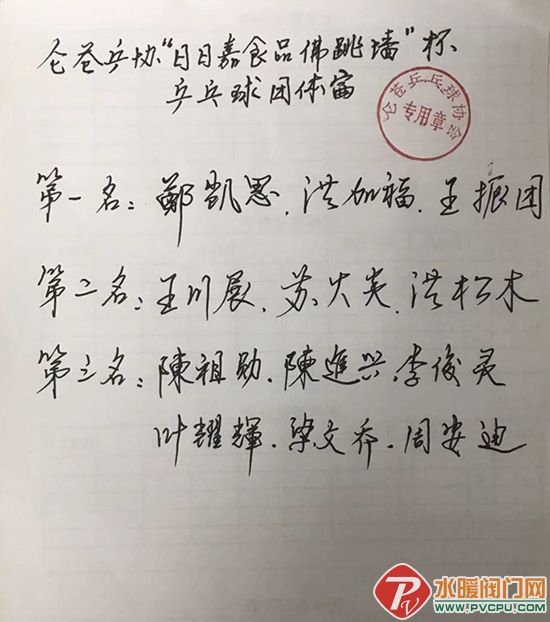 仑苍乒协“日日嘉食品佛跳墙”杯
乒乓球团体赛
仑苍乒乓球协会
专用章
第一名：鄭凯恩．洪加福．王振团
第二名：王川展．苏火炎．洪松木
第三名：陳祖勋．陳進兴．李俊灵
叶耀輝．梁文乔．周安迪
水暖阀门网
www.PVCPU.com